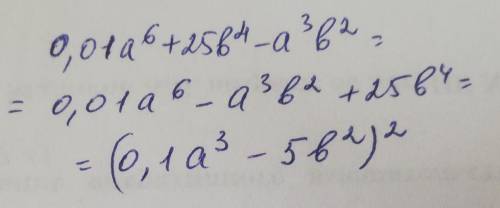 0,01a⁶+25b⁴-a³b²=
= 0,01a⁶ - a³b² + 25b⁴=
= (0,1a³ - 5b²)²